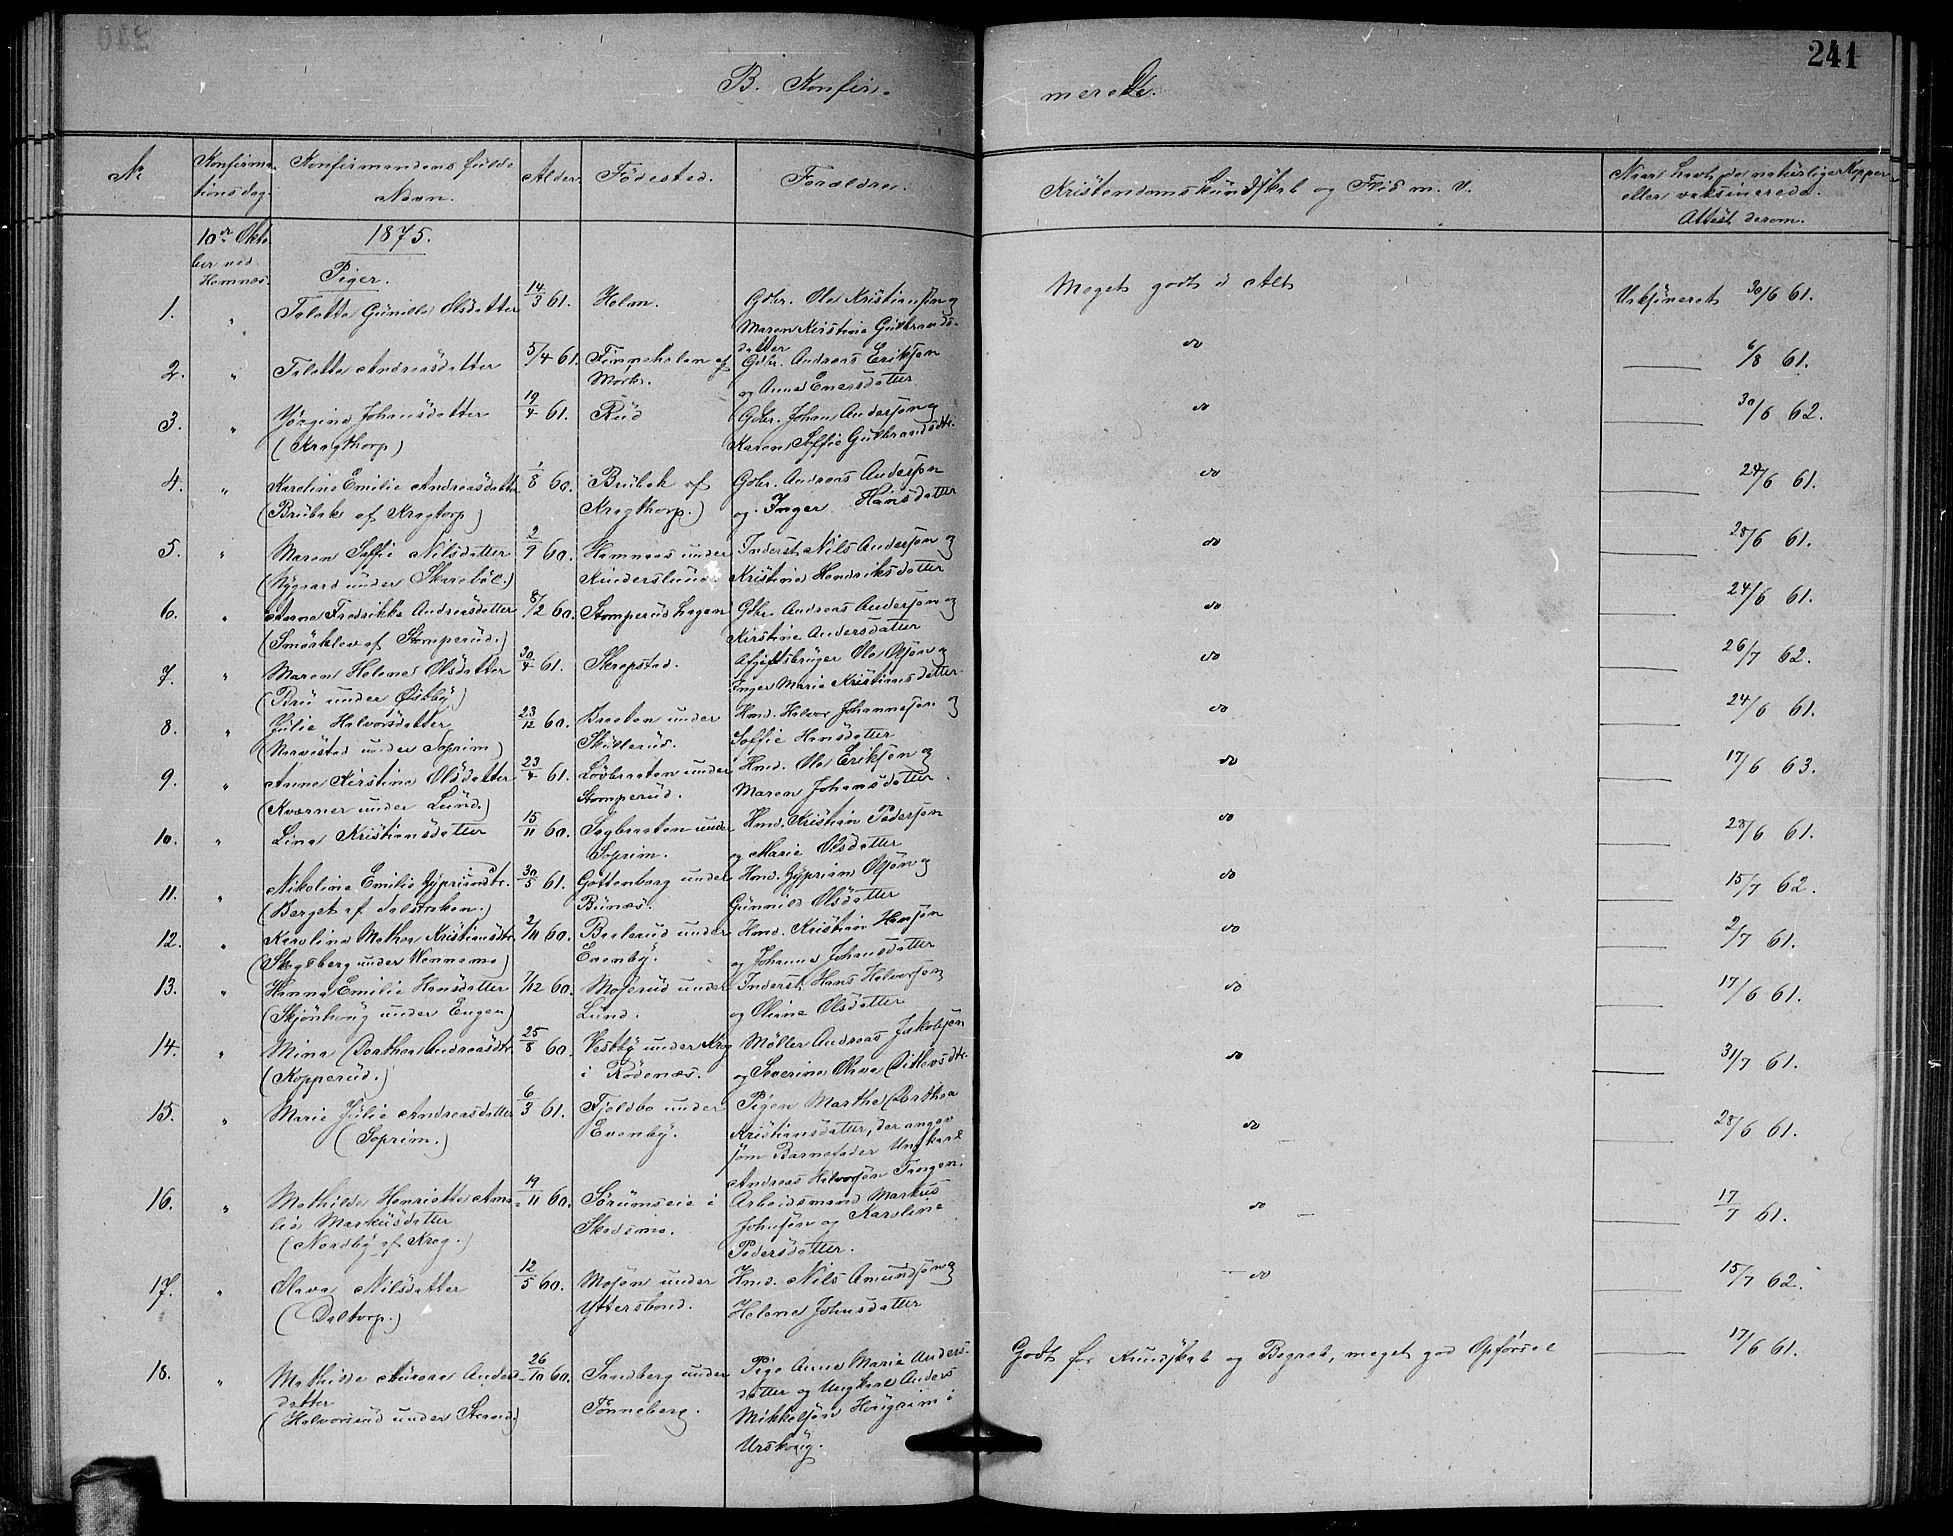 241
B. Konfir-
merede.
No
Konfirma-
tionsdag.
Konfirmandens fulde
Navn.
Alder.
Födested.
Forældre.
Kristendomskundskab og Flid m. v.
Naar havt de naturlige Kopper
eller vaksinerede.
Attest derom.
10de Okto-
ber ved
Hemnæs.
1875.
Piger.
1. " Talette Gunille Olsdatter 14/3 61. Holm. Gdbr. Ole Kristiansen og
Maren Kristine Gulbrands-
datter
Meget godt i Alt Vaksineret 30/6 61.
2. " Talette Andreasdatter 5/4 61. Tinneholen af
Mork. Gdbr. Andreas Eriksen
og Anne Enersdatter
do 6/8 61.
3. " Jörgine Johansdatter
(Kragthorp) 19/4 61. Rud Gdbr. Johan Andersen og
Karen Soffie Gulbrandsdtr.
do 30/6 62.
4. " Karoline Emilie Andreasdatter
(Brubak af Kragtorp) 1/8 60. Brubak af
Kragthorp.) Gdbr. Andreas Andersen
og Inger Hansdatter
do 24/6 61.
5. " Maren Soffie Nilsdatter
(Nygaard under Skareböl.) 2/9 60. Hemnæs under
Kinderslund. Inderst Nils Andersen og
Kristine Hendriksdatter
do 28/6 61.
6. " Anne Fredrikke Andreasdatter
(Smörklev af Stomperud.) 8/2 60. Stomperudhagen Gdbr. Andreas Andersen og
Kirstine Andersdatter
do 24/6 61.
7. " Maren Helene Olsdatter
(Bru under Østby) 30/4 61. Skrepstad. Afgiftsbruger Ole Olsen og
Inger Marie Kristiansdatter
do 26/7 62.
8. " Julie Halvorsdatter
(Narvestad under Soprim) 23/12 60. Braaten under
Skullerud. Hmd. Halvor Johannesen og
Soffie Hansdatter
do 24/6 61.
9. " Anne Kirstine Olsdatter
(Kværner under Lund.) 23/4 61. Lövbraaten under
Stomperud. Hmd. Ole Eriksen og
Maren Johansdatter
do 17/6 63.
10. " Lina Kristiansdatter 15/11 60. Sagbraaten under
Soprim. Hmd. Kristian Pedersen
og Marie Olsdatter
do 28/6 61.
11. " Nikoline Emilie Gypriansdtr.
(Berget af Dalstroken.) 30/5 61. Gottenborg under
Bunæs. Hmd. Gyprian Olsen og
Gunnild Olsdatter
do 15/7 62.
12. " Karoline Mathea Kristiansdtr.
(Skogsberg under Vinnemo) 2/11 60. Baalerud under
Evenby. Hmd. Kristian Hansen
og Johanne Johansdatter
do 2/7 61.
13. " Hanna Emilie Hansdatter
(Skjönhaug under Eugen) 7/12 60. Moserud under
Lund. Inderst Hans Halvorsen
og Oliane Olsdatter
do 17/6 61.
14. " Mina Dorthea Andreasdtr.
(Kopperud.) 25/8 60. Vestby under Krog
i Rödenæs. Møller Andreas Jakobsen
og Severine Olava Ditlevsdtr.
do 31/7 61.
15. " Marie Julie Andreasdatter
(Soprim.) 6/3 61. Fjeldbo under
Evenby. Pigen Marthe Dorthea
Kristiansdatter, der angav
som Barnefader Ungkarl
Andreas Halvorsen Tangen.
do 28/6 61.
16. " Mathilde Henriette Ama-
lie Markusdatter
(Nordby af Krog.) 19/11 60. Sörumseie i
Skedsmo. Arbeidsmand Markus
Johnsen og Karoline
Pedersdatter.
do 17/7 61.
17. " Olava Nilsdatter
(Daltorp.) 12/5 60. Mosen under
Yttersbond. Hmd. Nils Amundsen og
Helene Johnsdatter
do 15/7 62.
18. " Mathilde Aurora Anders-
datter
(Halvorsrud under Strand.) 26/10 60. Sandberg under
Tönneberg. Pige Anne Marie Anders-
datter og Ungkarl Anders
Mikkelsen Höugrim i
Urskoug.
Godt for Kundskab og Begreb, meget god Opførsel 17/6 61.